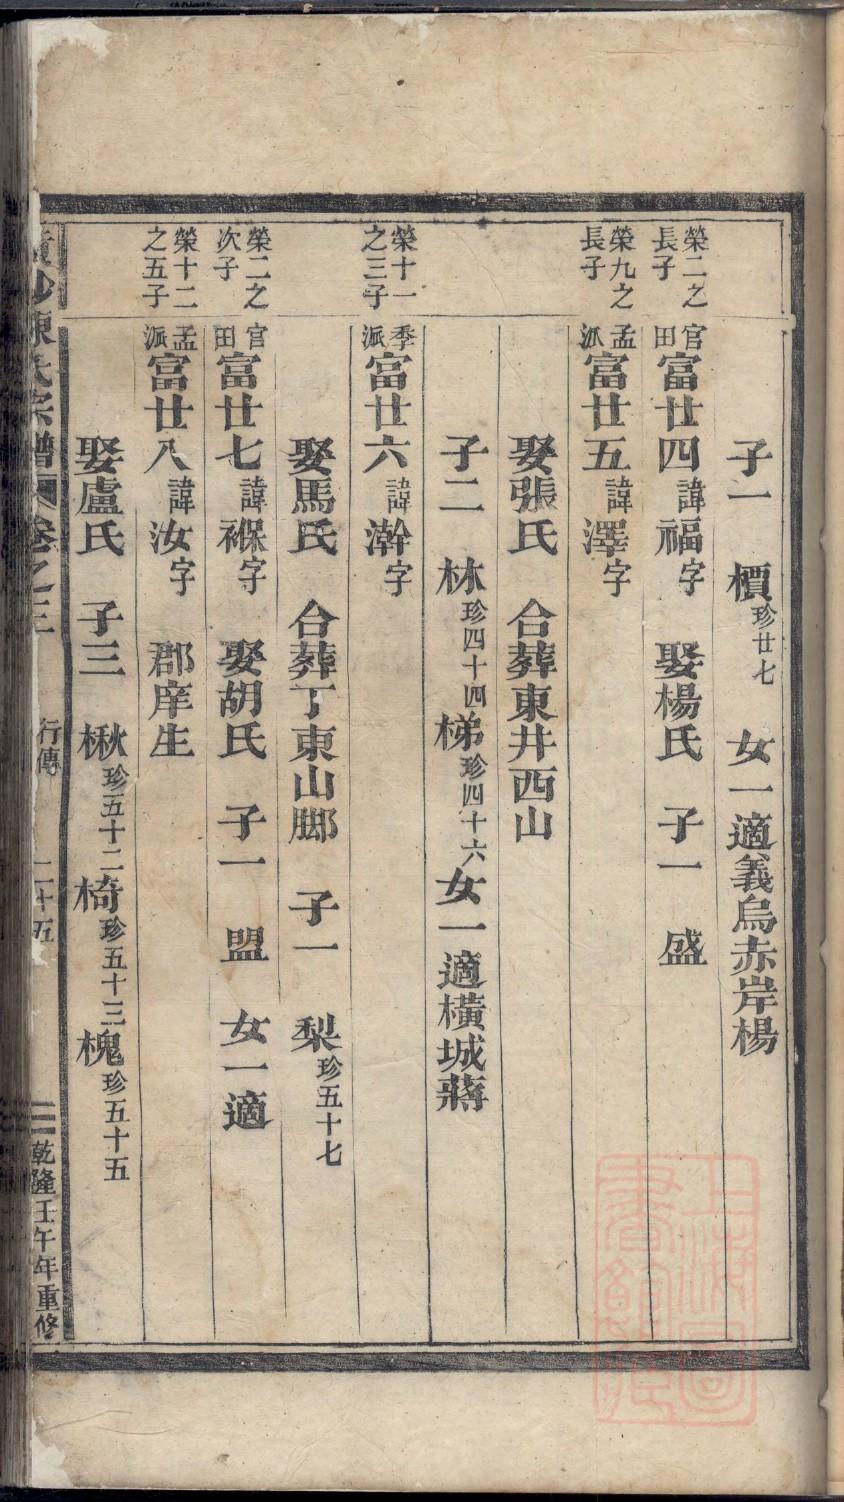 子一 檟珍廿七 女一適義烏赤岸楊
榮二之長子 官田富廿四諱福字 娶楊氏 子一 盛
榮九之長子 孟派富廿五諱澤字
娶張氏 合葬東井西山
子二 林珍四十四梯珍四十六女一適橫城蔣
榮十一之三子 季派富廿六諱澣字
娶馬氏 合葬丁東山腳 子一 梨珍五十七
榮二之次子 官田富廿七諱褓字 娶胡氏 子一 盟 女一適
榮十二之五子 孟派富廿八諱汝字 郡庠生
娶盧氏 子三 楸珍五十二椅珍五十三槐珍五十五
陳氏宗譜 卷之三 行傳 二十五 乾隆壬午年重修
上海圖書館藏